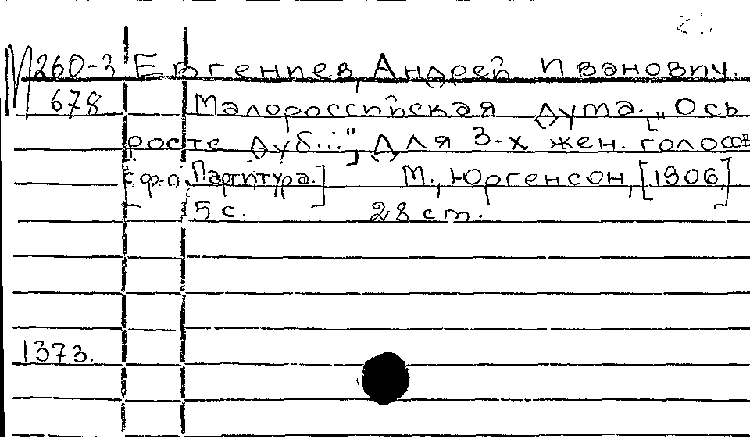 М260-3 Евгениев, Андрей Иванович.
678 Малороссийская дума. „Ось
росте дуб...", для 3-х жен. голосов
с ф-п. [Партитура.] М., Юргенсон, [1906]
5 с. 28 cm.
1373.